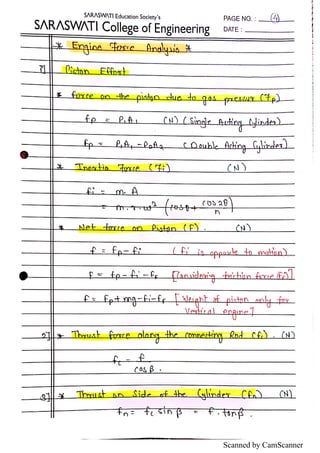 SARASWATI Education Society's
SARASWATI College of Engineering
PAGE NO. : (4)
DATE :
* Engine Force Analysis *
1] Piston Effort
* force on the piston due to gas pressure (Fp)
fp = P1A1 (N) (Single Acting Cylinder)
fp = P1A1 - P2A2 (Double Acting Cylinder)
* Inertia force (Fi) (N)
fi = m A
= m.r.ω² (cosθ + cos2θ/n)
* Net force on Piston (F). (N)
f = fp - fi (fi is opposite to motion)
f = fp - fi - ff [Considering friction force (Ff)]
f = fp + mg - fi - ff [Weight of piston only for
Vertical engine]
2] * Thrust force along the connecting Rod (fc). (N)
fc = f / cos β .
3] * Thrust on Side of the Cylinder (fn) (N)
fn = fc sin β = f . tan β .
Scanned by CamScanner